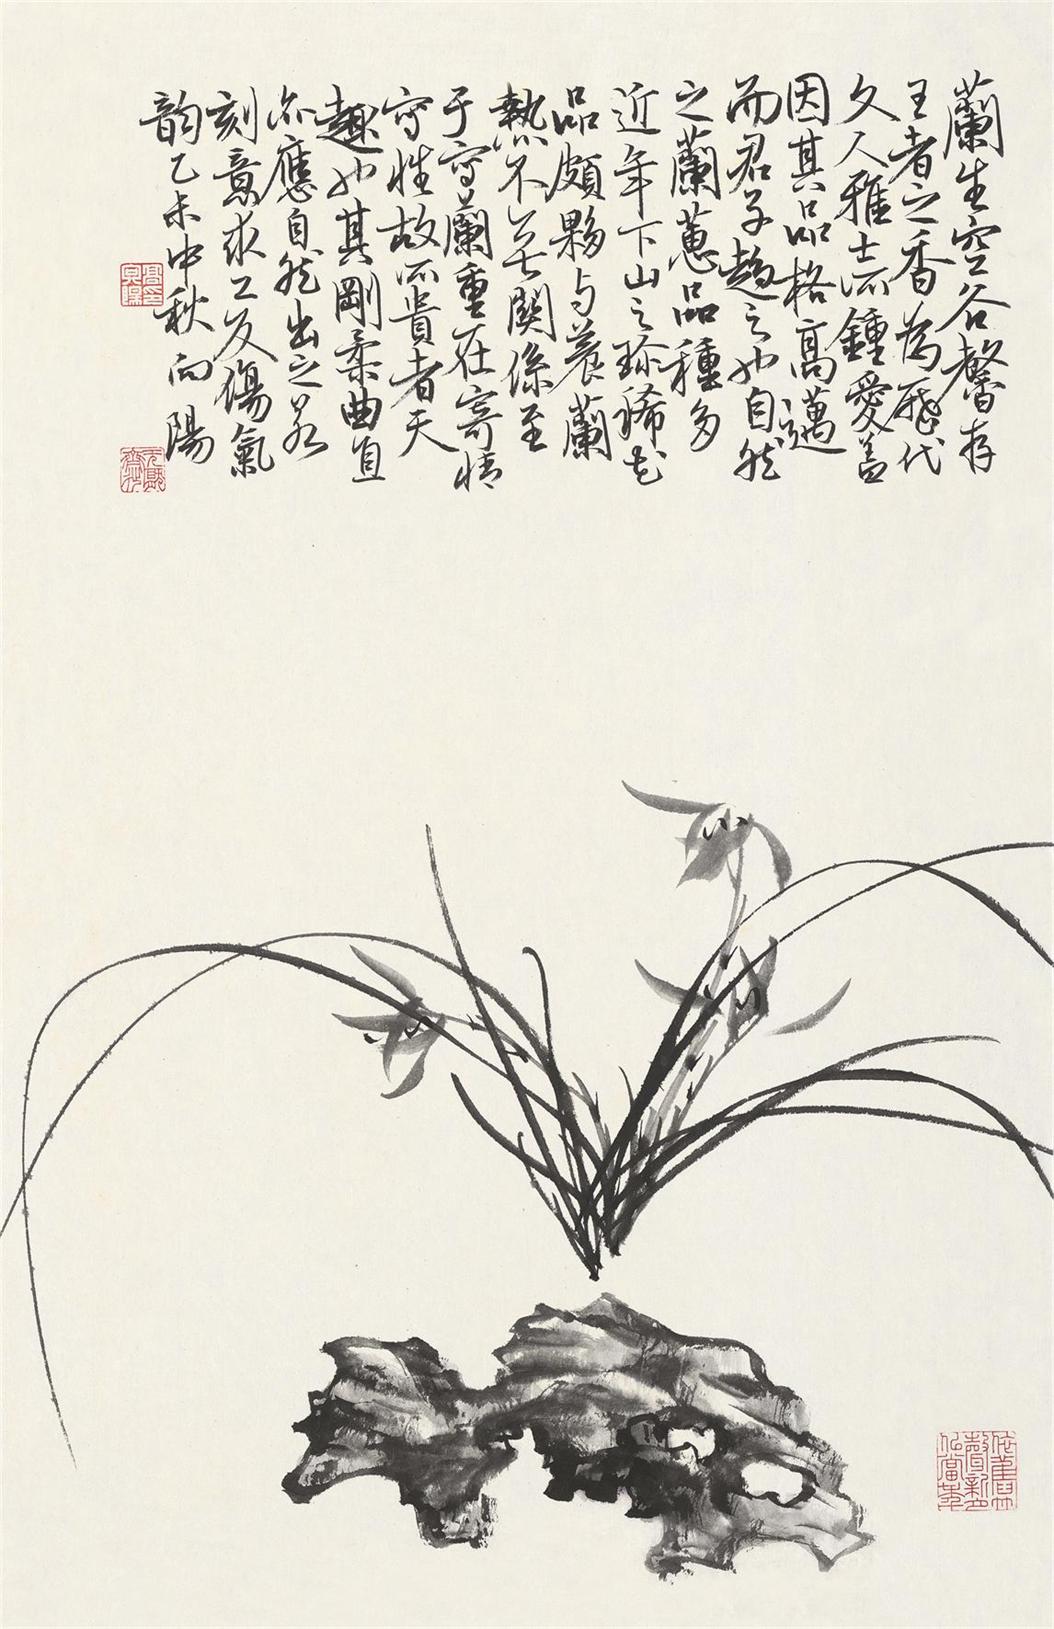 蘭生空谷馨存
王者之香為歷代
文人雅士所鍾愛蓋
因其品格高邁
而君子趨之也自然
之蘭蕙品種多
近年下山之珍稀花
品頗夥與養蘭
熱不無關係至
于寫蘭重在寄情
寫性故所貴者天
趣也其剛柔曲直
亦應自然出之若
刻意求工反傷氣
韵乙未中秋向陽